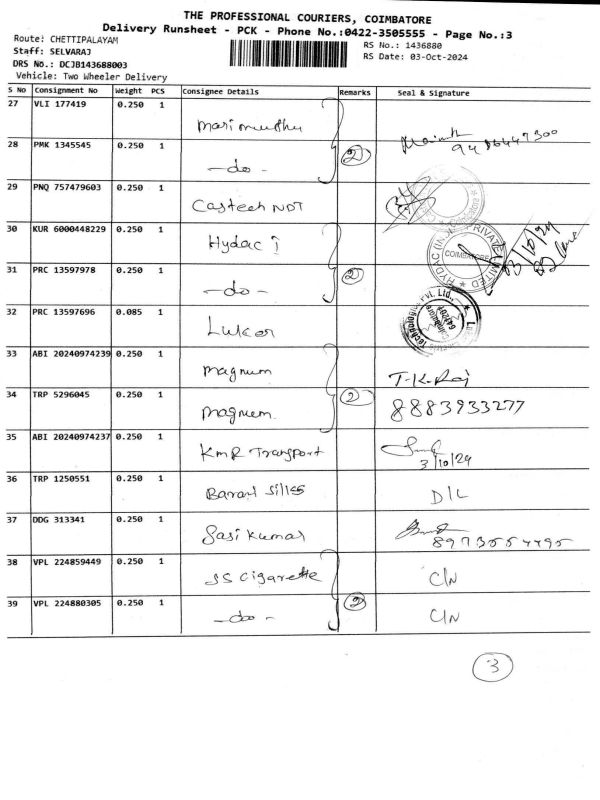 THE PROFESSIONAL COURIERS, COIMBATORE
Delivery Runsheet - PCK - Phone No.:0422-3505555 - Page No.:3
Route: CHETTIPALAYAM
RS No.: 1436880
Staff: SELVARAJ
RS Date: 03-Oct-2024
DRS No.: DCJB143688003
Vehicle: Two Wheeler Delivery
S No Consignment No Weight PCS Consignee Details Remarks Seal & Signature
27 VLI 177419 0.250 1 Marimuthu
28 PMK 1345545 0.250 1 -do- 2 9486447300
29 PNQ 757479603 0.250 1 Castech NDT
30 KUR 6000448229 0.250 1 Hydac I
HYDAC (IN PRIVATE LIMITED COIMBATORE 03/10/24
31 PRC 13597978 0.250 1 -do- 2
32 PRC 13597696 0.085 1 Lukas
Technologies Pvt. Ltd., Coimbatore
33 ABI 20240974239 0.250 1 Magnum T.K.Raj
34 TRP 5296045 0.250 1 Magnum 2 8883933277
35 ABI 20240974237 0.250 1 KMR Transport 3/10/24
36 TRP 1250551 0.250 1 Silks D/L
37 DDG 313341 0.250 1 Sasi Kumar
38 VPL 224859449 0.250 1 SS Cigarette C/N
39 VPL 224880305 0.250 1 -do- 2 C/N
3